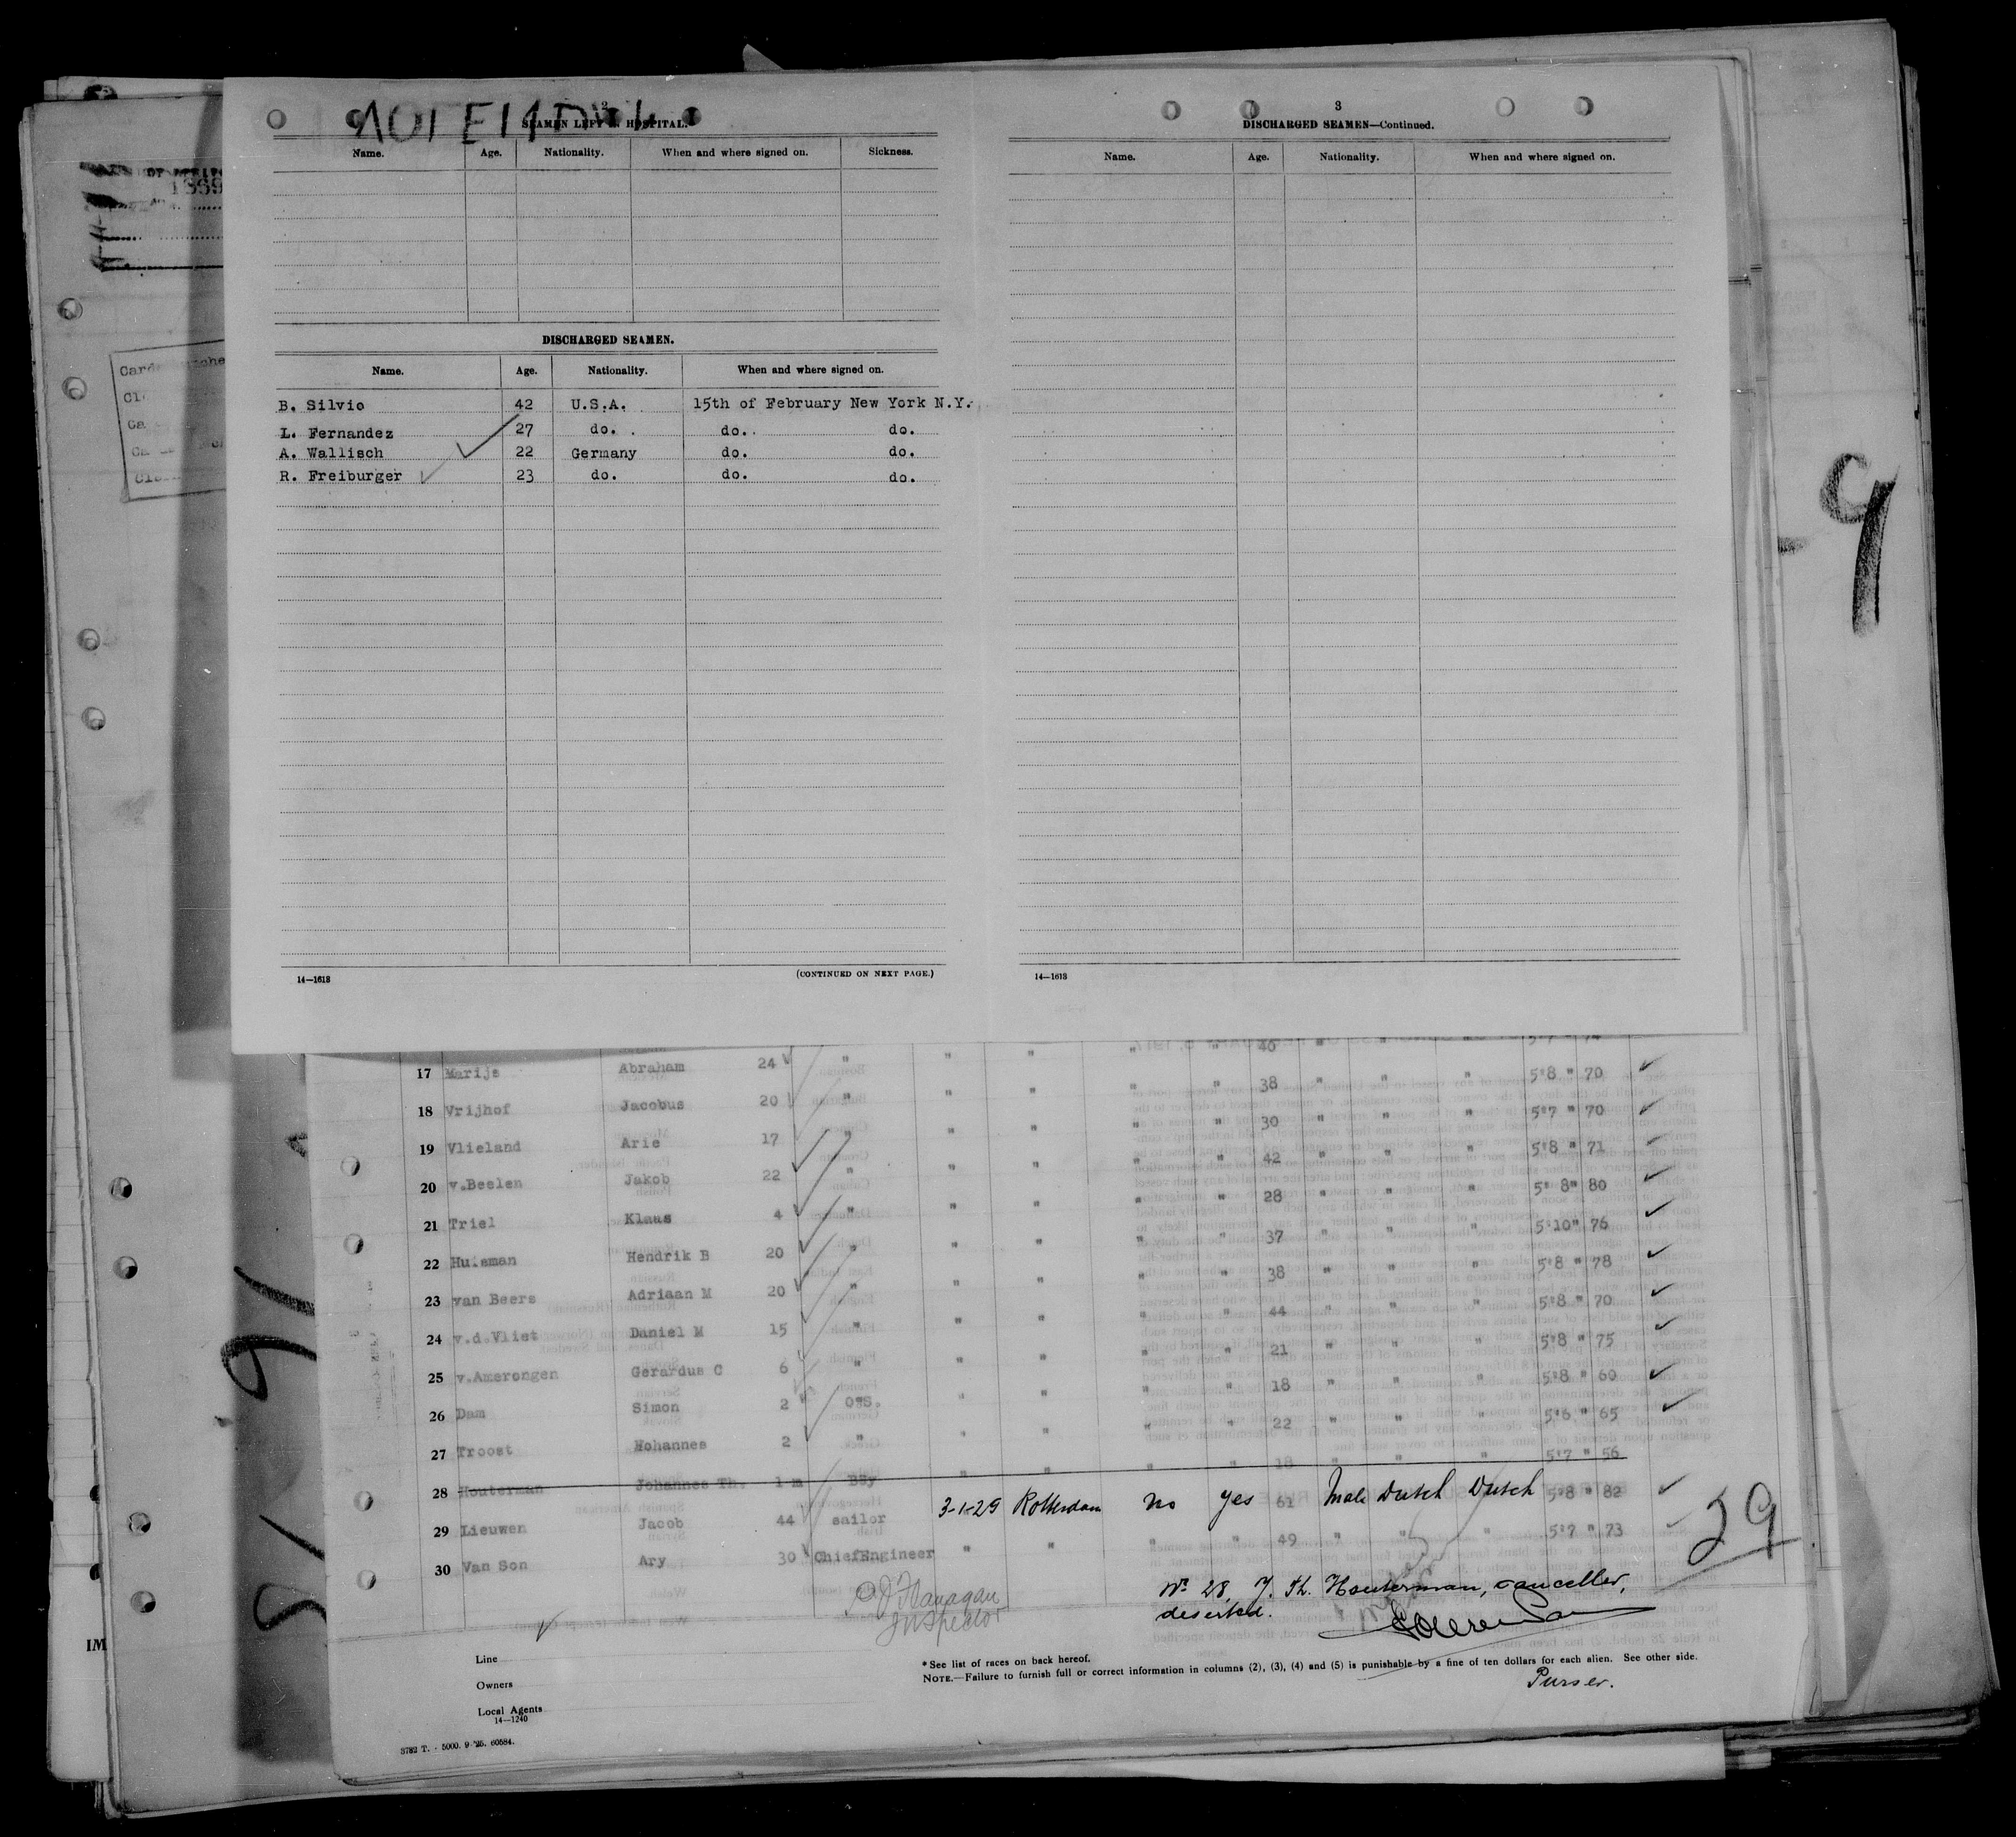 2
SEAMEN LEFT HOSPITAL.
Name. Age. Nationality. When and where signed on. Sickness.
DISCHARGED SEAMEN.
Name. Age. Nationality. When and where signed on.
B. Silvio 42 U.S.A. 15th of February New York N.Y.
L. Fernandez 27 do. do. do.
A. Wallisch 22 Germany do. do.
R. Freiburger 23 do. do. do.
14—1618 (CONTINUED ON NEXT PAGE.)
3
DISCHARGED SEAMEN—Continued.
Name. Age. Nationality. When and where signed on.
14—1618
9
40 " " " 5'7 " 74
17 Marijs Abraham 24 " " " " " 38 " " " 5'8 " 70
18 Vrijhof Jacobus 20 " " " " " 30 " " " 5'7 " 70
19 Vlieland Arie 17 " " " " " 42 " " " 5'8 " 71
20 v.Beelen Jakob 22 " " " " " 28 " " " 5'8" 80
21 Triel Klaas 4 " " " " " 37 " " " 5'10" 76
22 Huisman Hendrik B 20 " " " " " 38 " " " 5'8 " 78
23 van Beers Adriaan M 20 " " " " " 44 " " " 5'8 " 70
24 v.d.Vliet Daniel M 15 " " " " " 21 " " " 5'8 " 75
25 v.Amerongen Gerardus C 6 " " " " " 18 " " " 5'8 " 60
26 Dam Simon 2 O.S. " " " " 22 " " " 5'6 " 65
27 Troost Hohannes 2 " " " " " 18 " " " 5'7 " 56
28 Houterman Johannes Th. 1 m Bsy
29 Lieuwen Jacob 44 sailor 3-1-29 Rotterdam no yes 61 Male Dutch Dutch 5'8 " 82
30 Van Son Ary 30 ChiefEngineer " " " " 49 " " " 5'7 " 73
29
P J Flanagan
Inspector
No 28, J. Th. Houterman, canceller,
deserted.
Purser.
Line
Owners
Local Agents
14—1240
*See list of races on back hereof.
NOTE.—Failure to furnish full or correct information in columns (2), (3), (4) and (5) is punishable by a fine of ten dollars for each alien. See other side.
3782 T. - 5000. 9-'25. 60584.
IM